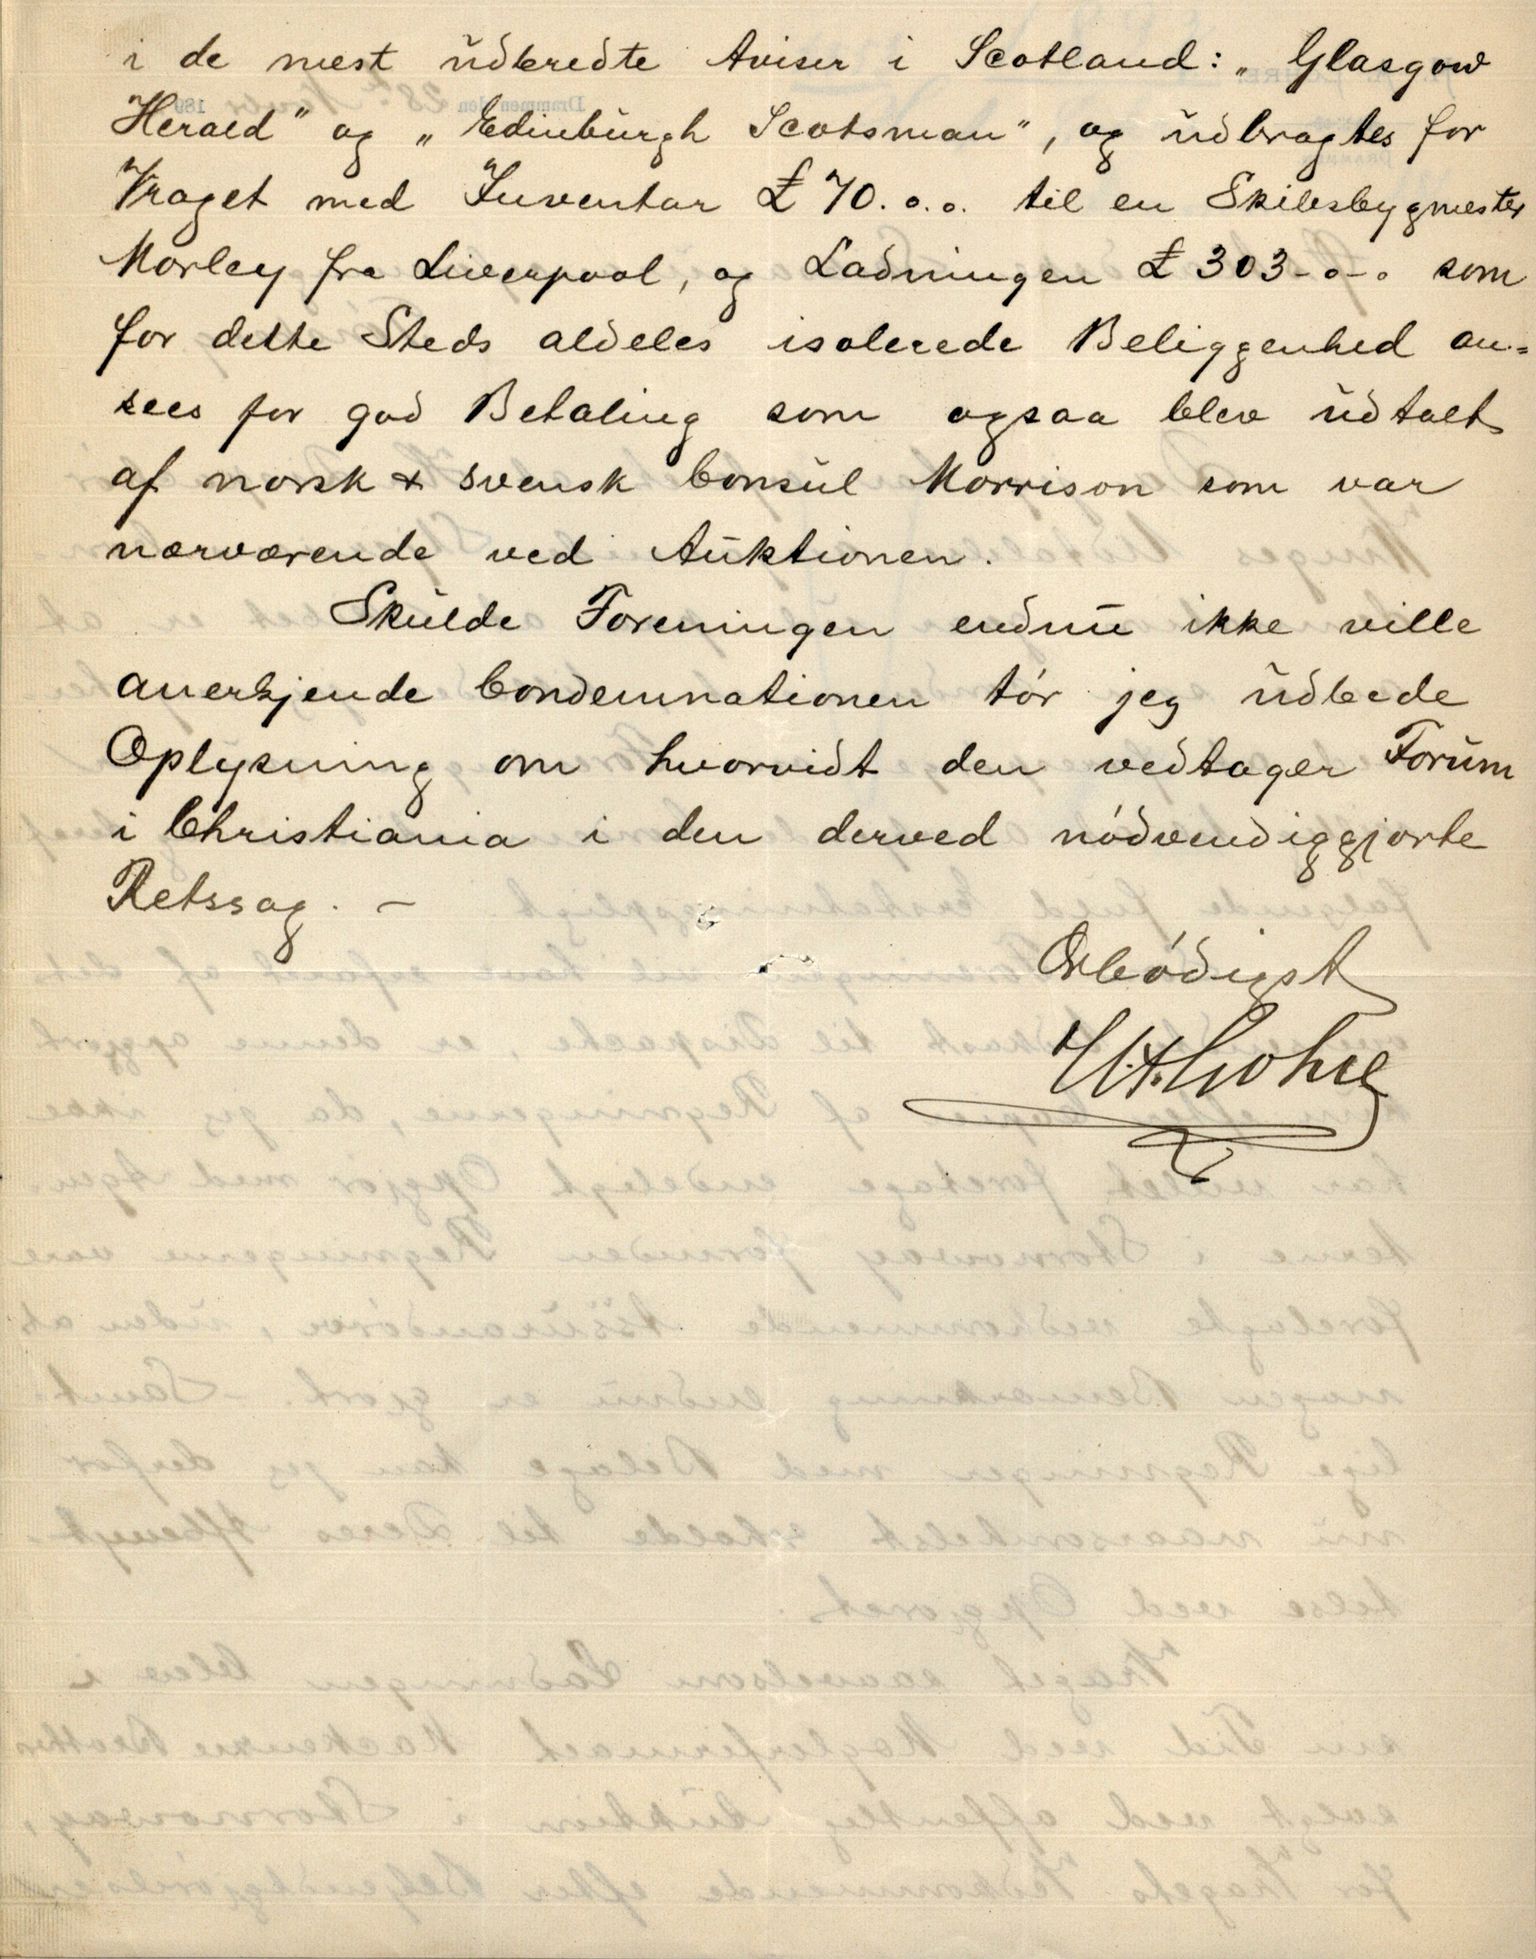 i de mest udbredte Aviser i Scotland: „Glasgow
Herald" og „Edinburgh Scotsman", og udbragtes for
Vraget med Inventar £ 70. o. o. til en Skibsbygmester
Morley fra Liverpool, og Ladningen £ 303-o-o som
for dette Steds aldeles isolerede Beliggenhed an=
sees for god Betaling som ogsaa blev udtalt
af norsk & svensk Consul Morrison som var
nærværende ved Auktionen.
Skulde Foreningen endnu ikke ville
anerkjende Condemnationen tör jeg udbede
Oplysning om hvorvidt den vedtager Forum
i Christiania i den derved nödvendiggjorte
Retssag. –
Ærbödigst